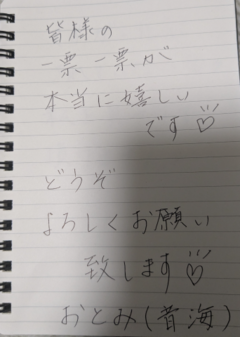 皆様の
一票一票が
本当に嬉しい
です♡
どうぞ
よろしくお願い
致します♡
おとみ(音海)